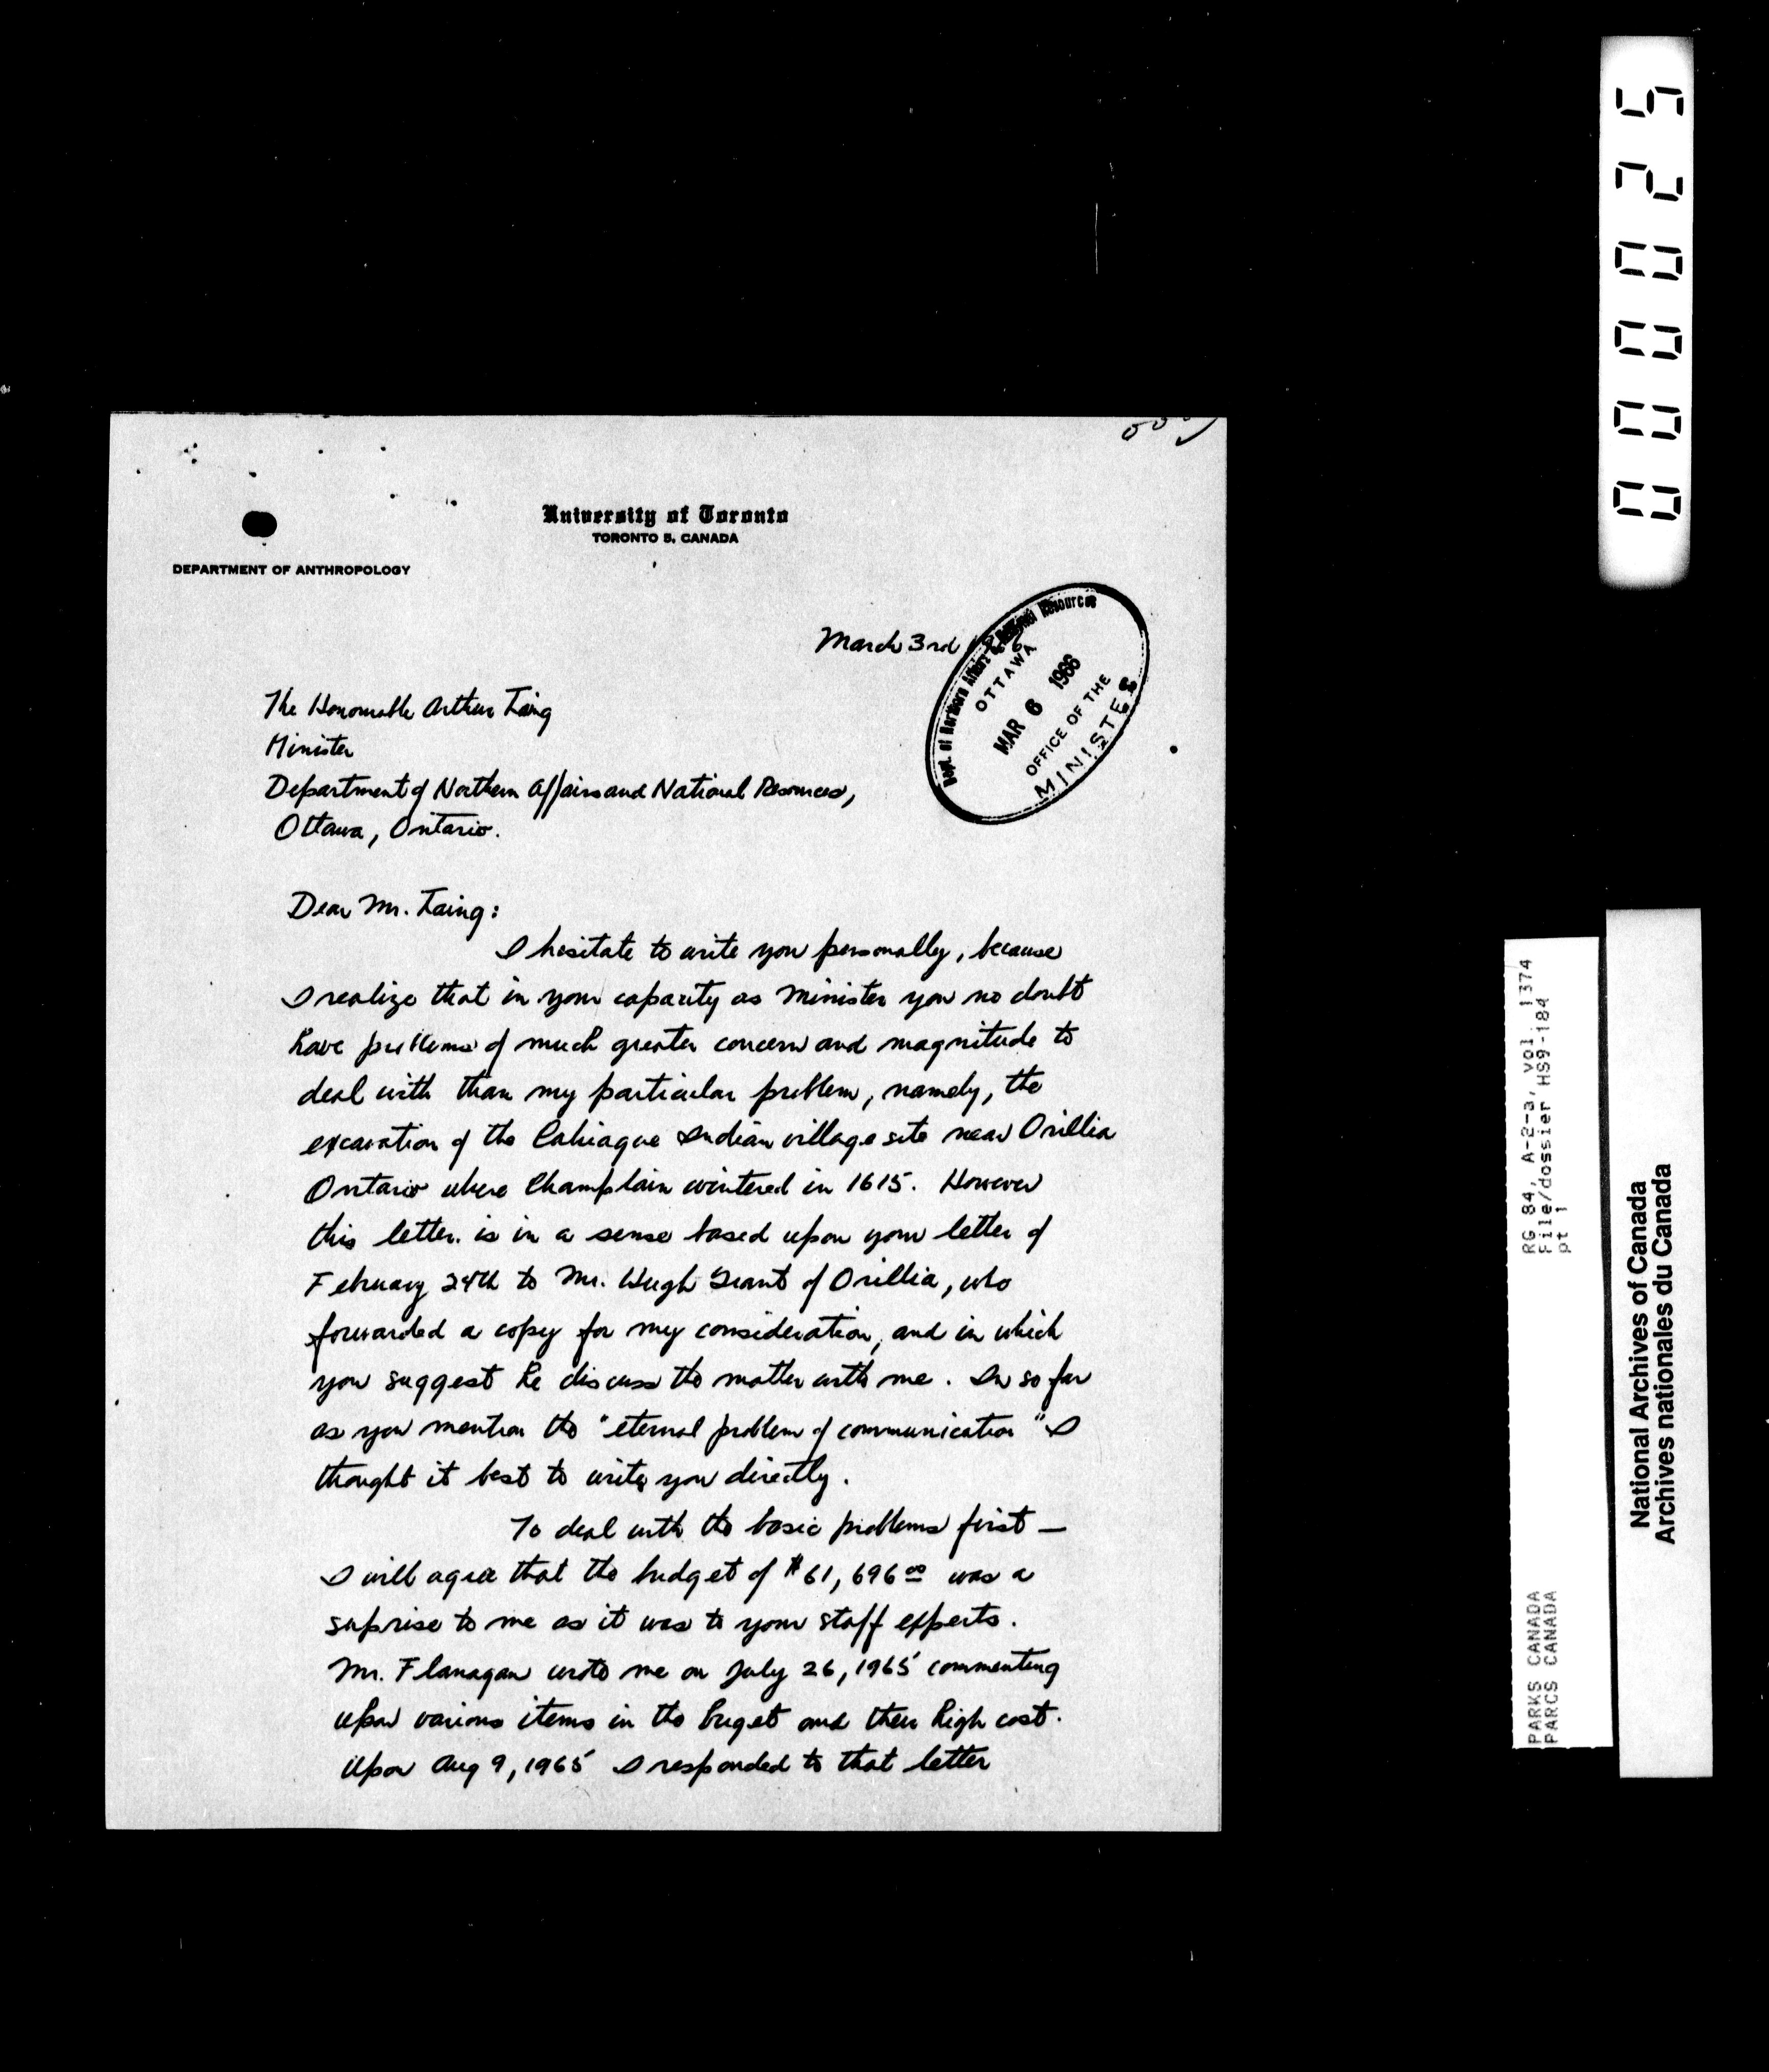 University of Toronto
TORONTO 5, CANADA
DEPARTMENT OF ANTHROPOLOGY
March 3rd
Dept. of Northern Affairs & National Resources
OTTAWA
MAR 6 1966
OFFICE OF THE
MINISTER
The Honourable Arthur Laing
Minister
Department of Northern Affairs and National Resources,
Ottawa, Ontario.
Dear Mr. Laing:
I hesitate to write you personally, because
I realize that in your capacity as Minister you no doubt
have problems of much greater concern and magnitude to
deal with than my particular problem, namely, the
excavation of the Cahiague Indian village site near Orillia
Ontario where Champlain wintered in 1615. However
this letter is in a sense based upon your letter of
February 24th to Mr. Hugh Grant of Orillia, who
forwarded a copy for my consideration, and in which
you suggest he discuss the matter with me. In so far
as you mention the "eternal problem of communication" I
thought it best to write you directly.
To deal with the basic problems first —
I will agree that the budget of $61,696.00 was a
suprise to me as it was to your staff experts.
Mr. Flanagan wrote me on July 26, 1965 commenting
upon various items in the buget and their high cost.
Upon Aug 9, 1965 I responded to that letter
000025
RG 84, A-2-a, vol. 1374
File/dossier HS9-184
pt 1
PARKS CANADA
PARCS CANADA
National Archives of Canada
Archives nationales du Canada